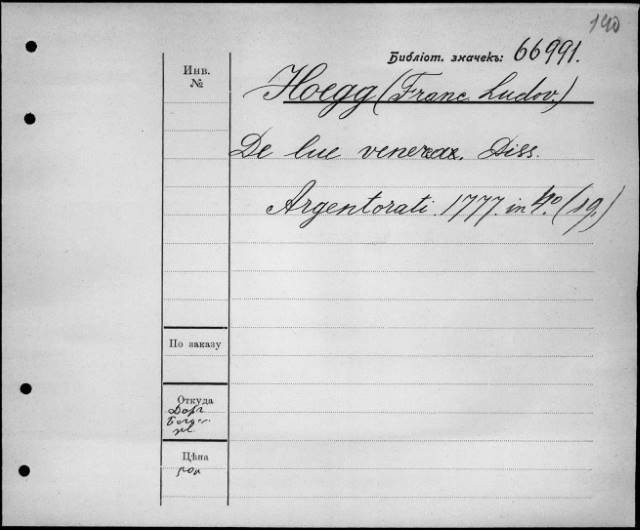 140
Библіот. значекъ: 66991.
Инв.
№
Hoegg (Franc. Ludov.)
De lue venerea. Diss.
Argentorati. 1777. in 4º. (19.)
По заказу
Откуда
Цѣна